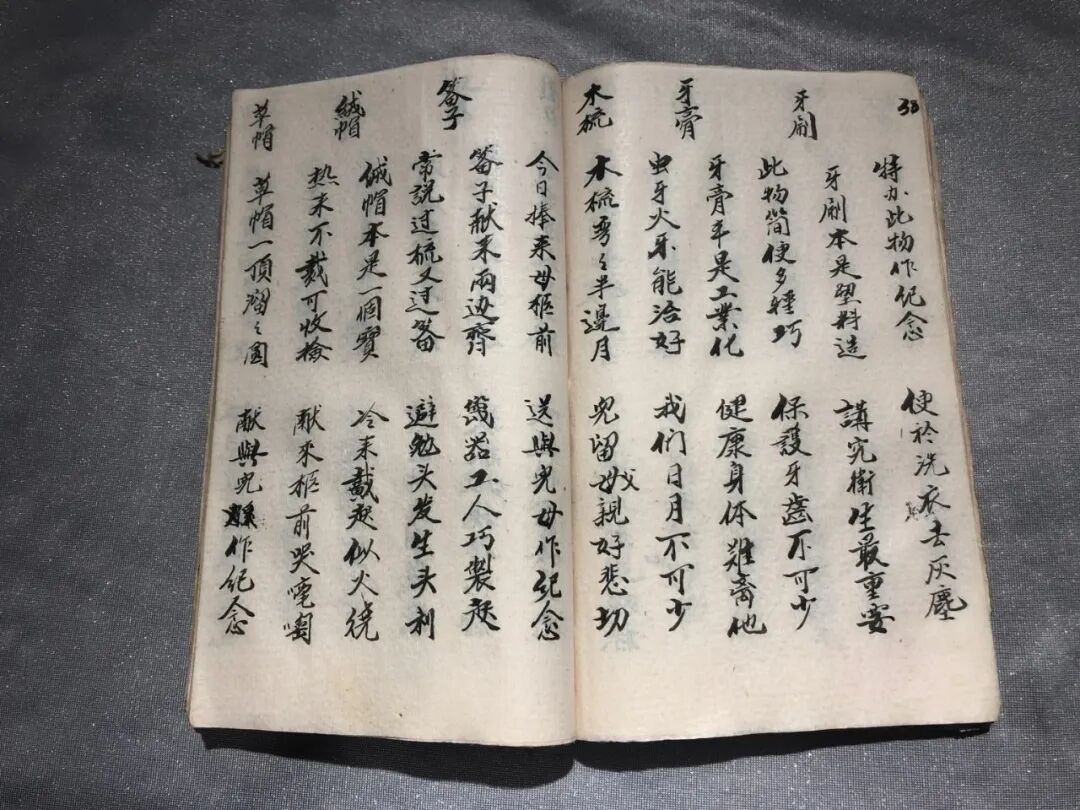 38
特办此物作纪念 便於洗衣去灰塵
牙刷
牙刷本是塑料造 講究衛生最重要
此物简便多轻巧 保護牙齒不可少
牙膏
牙膏本是工業化 健康身体難离他
虫牙火牙能治好 我们日月不可少
木梳
木梳弯々半邊月 兒留父母親好悲切
今日捧来母柩前 送與兒母作纪念
篦子
篦子献来兩边齊 機器工人巧製起
常説过梳又过篦 避勉头发生头利
絨帽
絨帽本是一個寶 冷来戴起似火烧
热来不戴可收檢 献來柩前哭嚎啕
草帽
草帽一頂溜々圆 献與兒作纪念